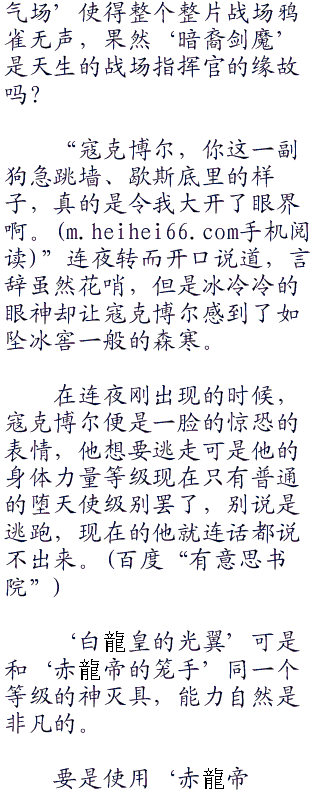 气场’使得整个整片战场鸦
雀无声，果然‘暗裔剑魔’
是天生的战场指挥官的缘故
吗？
“寇克博尔，你这一副
狗急跳墙、歇斯底里的样
子，真的是令我大开了眼界
啊。(m.heihei66.com手机阅
读)”连夜转而开口说道，言
辞虽然花哨，但是冰冷冷的
眼神却让寇克博尔感到了如
坠冰窖一般的森寒。
在连夜刚出现的时候，
寇克博尔便是一脸的惊恐的
表情，他想要逃走可是他的
身体力量等级现在只有普通
的堕天使级别罢了，别说是
逃跑，现在的他就连话都说
不出来。(百度“有意思书
院”)
‘白龍皇的光翼’可是
和‘赤龍帝的笼手’同一个
等级的神灭具，能力自然是
非凡的。
要是使用‘赤龍帝